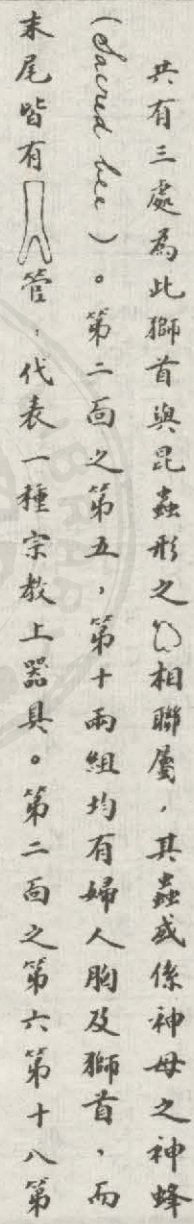 共有三處為此獅首與昆蟲形之相聯屬，其蟲或係神母之神蜂
(Sacred bee)。第二面之第五，第十兩組均有婦人胸及獅首，而
末尾皆有管，代表一種宗教上器具。第二面之第六第十八第